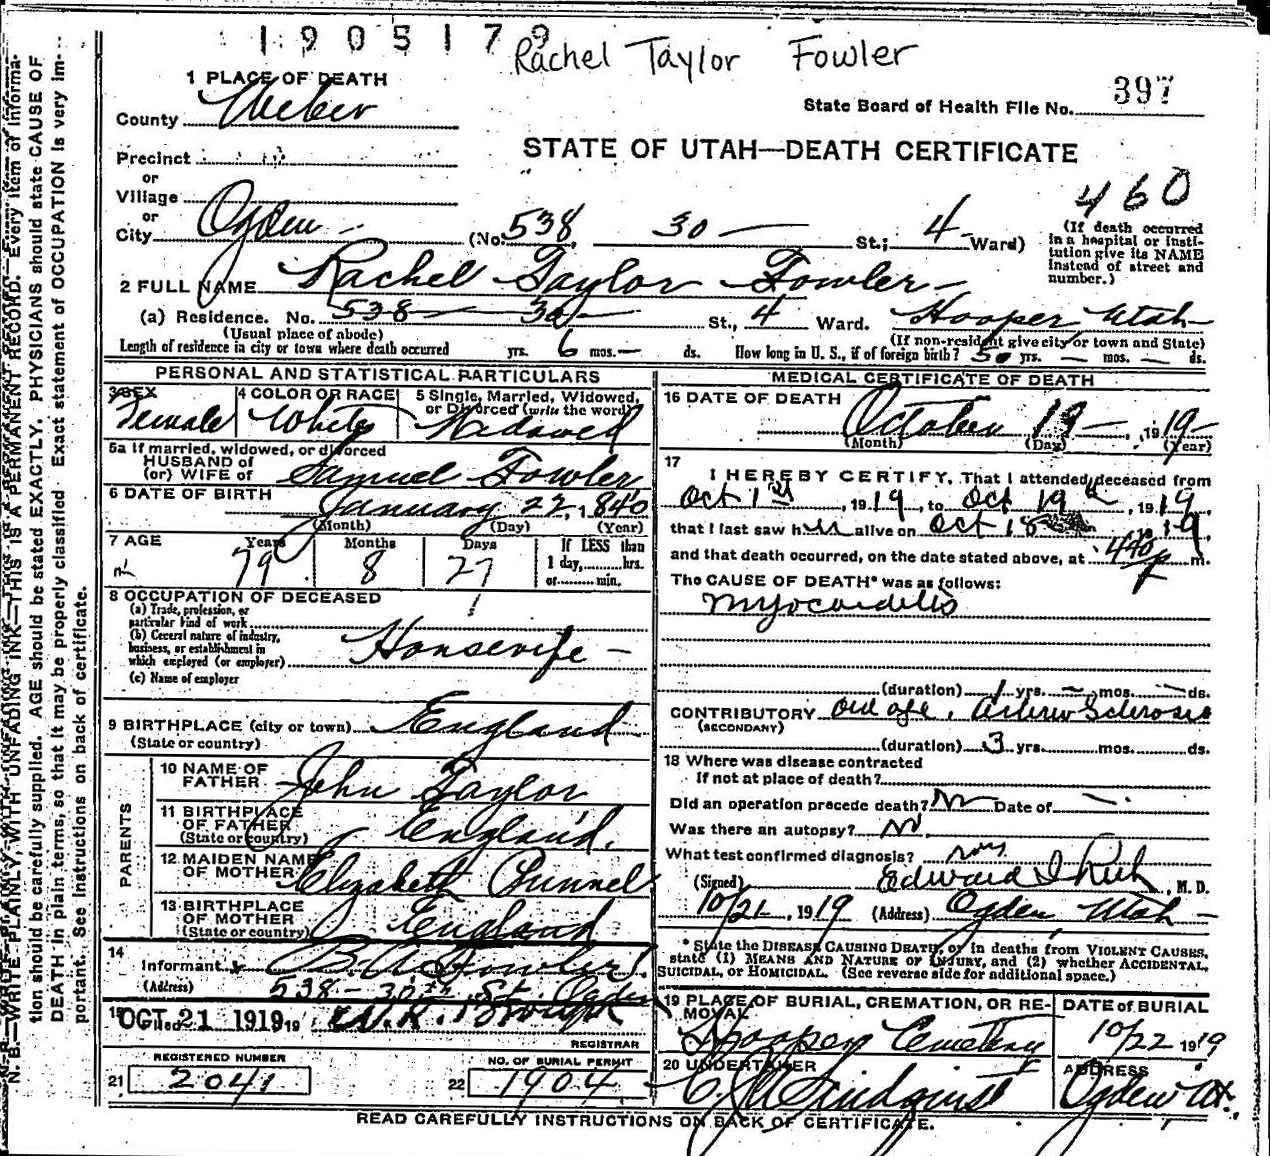 1905179
Rachel Taylor Fowler
1 PLACE OF DEATH
County Weber
State Board of Health File No. 397
Precinct
STATE OF UTAH—DEATH CERTIFICATE
or
Village
460
or
City Ogden (No. 538, 30 — St.; 4 Ward)
(If death occurred in a hospital or institution give its NAME instead of street and number.)
2 FULL NAME Rachel Taylor Fowler
(a) Residence. No. 538 — 30 — St., 4 Ward. Hooper, Utah
(Usual place of abode) (If non-resident give city or town and State)
Length of residence in city or town where death occurred yrs. 6 mos. — ds. How long in U. S., if of foreign birth? 50 yrs. — mos. — ds.
PERSONAL AND STATISTICAL PARTICULARS
3 SEX Female
4 COLOR OR RACE White
5 Single, Married, Widowed, or Divorced (write the word) Widowed
5a If married, widowed, or divorced
HUSBAND of
(or) WIFE of Samuel Fowler
6 DATE OF BIRTH January 22, 1840
(Month) (Day) (Year)
7 AGE Years 79 Months 8 Days 27 If LESS than 1 day,......hrs. or......min.
8 OCCUPATION OF DECEASED
(a) Trade, profession, or particular kind of work
(b) General nature of industry, business, or establishment in which employed (or employer)
Housewife —
(c) Name of employer
9 BIRTHPLACE (city or town) England
(State or country)
PARENTS
10 NAME OF FATHER John Taylor
11 BIRTHPLACE OF FATHER England.
(State or country)
12 MAIDEN NAME OF MOTHER Elizabeth Bunnel
13 BIRTHPLACE OF MOTHER England
(State or country)
14
Informant B. A. Fowler
(Address) 538 — 30th St. Ogden
15 Filed OCT 21 1919 19
REGISTRAR
REGISTERED NUMBER
21 2041
NO. OF BURIAL PERMIT
22 1904
MEDICAL CERTIFICATE OF DEATH
16 DATE OF DEATH October 19 —, 1919
(Month) (Day) (Year)
17
I HEREBY CERTIFY, That I attended deceased from
Oct 1st, 1919, to Oct 19th, 1919,
that I last saw her alive on Oct 18 19,
and that death occurred, on the date stated above, at 440 p m.
The CAUSE OF DEATH* was as follows:
Myocarditis
(duration) 1 yrs. — mos. — ds.
CONTRIBUTORY Old age, Arterio Sclerosis
(SECONDARY)
(duration) 3 yrs. mos. ds.
18 Where was disease contracted
if not at place of death?
Did an operation precede death? No Date of
Was there an autopsy? No.
What test confirmed diagnosis?
(Signed) Edward I Rich, M. D.
10/21, 1919 (Address) Ogden Utah
* State the DISEASE CAUSING DEATH, or in deaths from VIOLENT CAUSES, state (1) MEANS AND NATURE OF INJURY, and (2) whether ACCIDENTAL, SUICIDAL, or HOMICIDAL. (See reverse side for additional space.)
19 PLACE OF BURIAL, CREMATION, OR REMOVAL
Hooper Cemetery
DATE of BURIAL
10/22 1919
20 UNDERTAKER
Lindquist
ADDRESS
Ogden Ut.
READ CAREFULLY INSTRUCTIONS ON BACK OF CERTIFICATE.
N. B.—WRITE PLAINLY, WITH UNFADING INK—THIS IS A PERMANENT RECORD. Every item of information should be carefully supplied. AGE should be stated EXACTLY. PHYSICIANS should state CAUSE OF DEATH in plain terms, so that it may be properly classified. Exact statement of OCCUPATION is very important. See instructions on back of certificate.